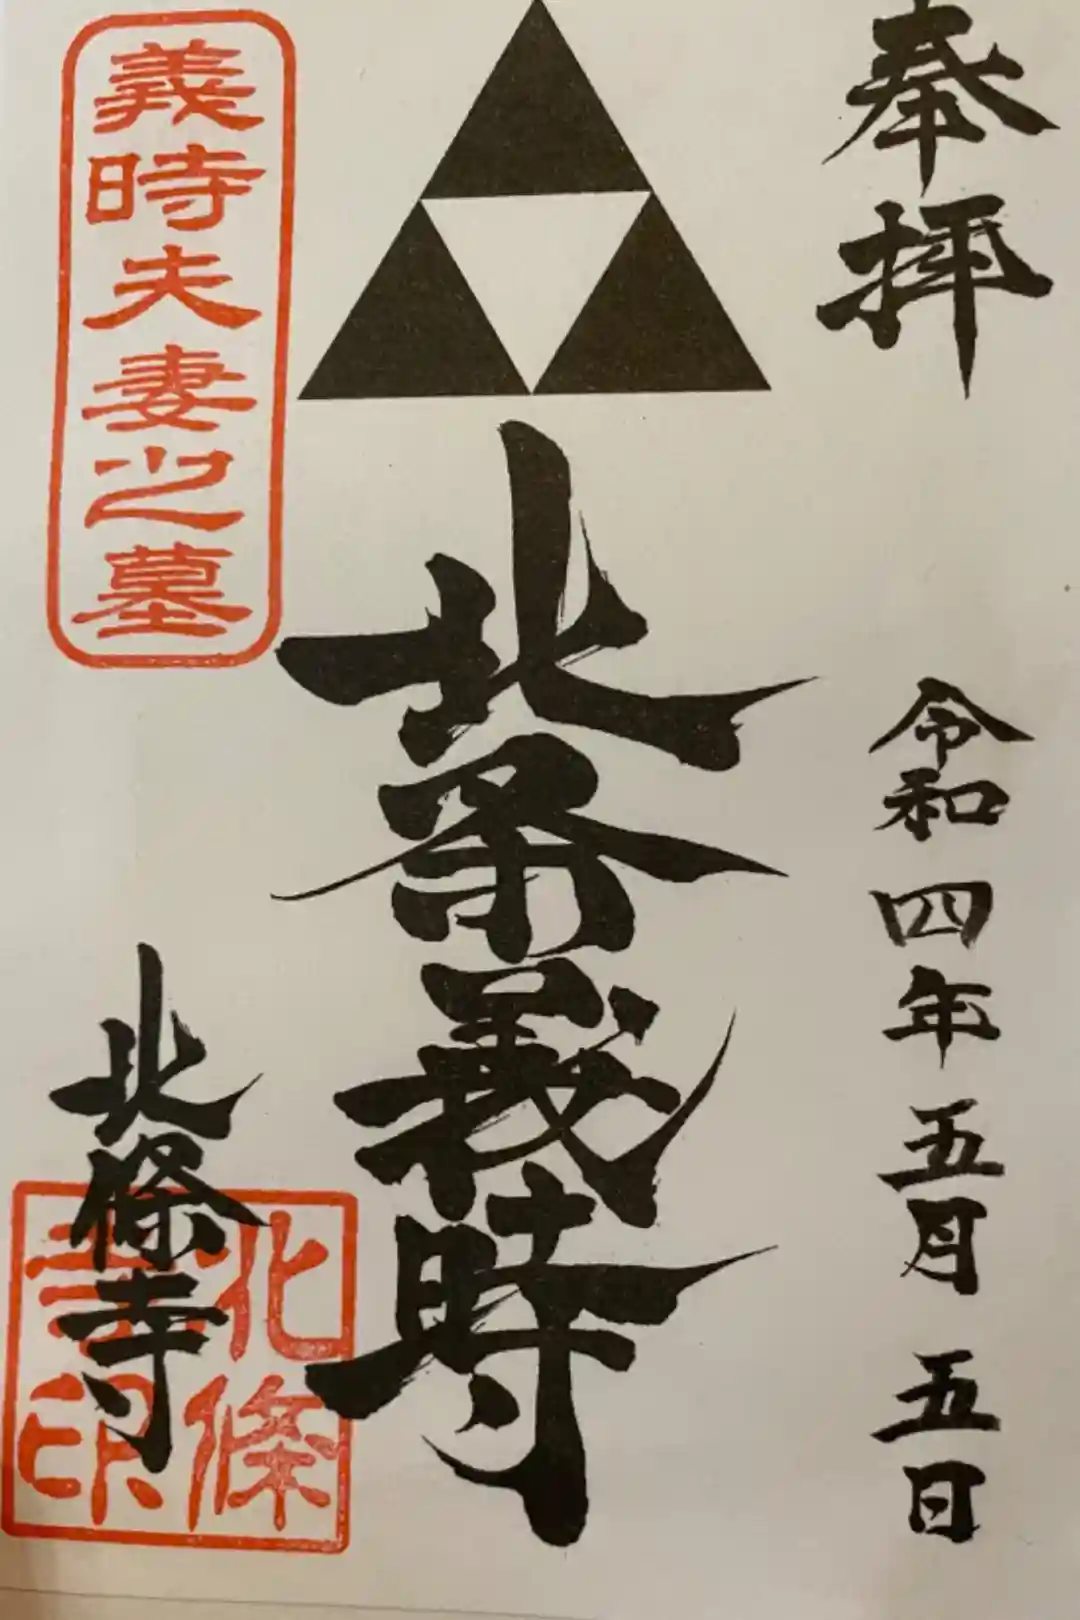 奉拝
令和四年五月五日
北条義時
義時夫妻之墓
北條寺
北條寺印